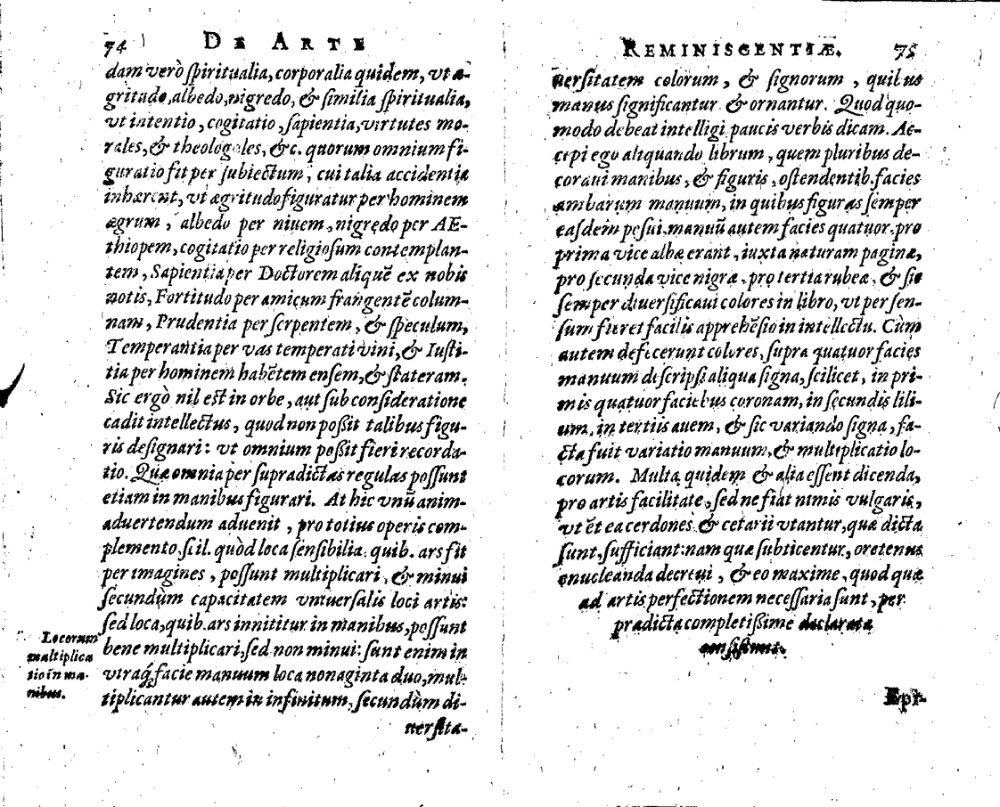 74 DE ARTE
dam verò spiritualia, corporalia quidem, vt æ-
gritudo, albedo, nigredo, & similia spiritualia,
vt intentio, cogitatio, sapientia, virtutes mo-
rales, & theologales, &c. quorum omnium fi-
guratio fit per subiectum, cui talia accidentia
inhærent, vt ægritudo figuratur per hominem
ægrum, albedo per niuem, nigredo per AE-
thiopem, cogitatio per religiosum contemplan-
tem, Sapientia per Doctorem aliquẽ ex nobis
notis, Fortitudo per amicum frangentẽ colum-
nam, Prudentia per serpentem, & speculum,
Temperantia per vas temperati vini, & Iusti-
tia per hominem habẽtem ensem, & stateram.
Sic ergò nil est in orbe, aut sub consideratione
cadit intellectus, quod non poßit talibus figu-
ris designari: vt omnium poßit fieri recorda-
tio. Quæ omnia per supradictas regulas possunt
etiam in manibus figurari. At hic vnũ anim-
aduertendum aduenit, pro totius operis com-
plemento, scil. quòd loca sensibilia quib. ars fit
per imagines, possunt multiplicari, & minui
secundùm capacitatem vniuersalis loci artis:
sed loca, quib. ars innititur in manibus, possunt
bene multiplicari, sed non minui: sunt enim in
vtraq́; facie manuum loca nonaginta duo, mul-
tiplicantur autem in infinitum, secundùm di-
uersita-
Locorum
multiplica
tio in ma-
nibus.
REMINISCENTIÆ. 75
uersitatem colorum, & signorum, quibus
manus significantur & ornantur. Quod quo-
modo debeat intelligi paucis verbis dicam. Ac-
cepi ego aliquando librum, quem pluribus de-
coraui manibus, & figuris, ostendentib. facies
ambarum manuum, in quibus figuras semper
easdem posui. manuũ autem facies quatuor pro
prima vice albæ erant, iuxta naturam paginæ,
pro secunda vice nigræ, pro tertia rubeæ, & sic
semper diuersificaui colores in libro, vt per sen-
sum fieret facilis apprehẽsio in intellectu. Cùm
autem defecerunt colores, supra quatuor facies
manuum descripsi aliqua signa, scilicet, in pri-
mis quatuor faciebus coronam, in secundis lili-
um, in tertiis auem, & sic variando signa, fa-
cta fuit variatio manuum, & multiplicatio lo-
corum. Multa quidem & alia essent dicenda,
pro artis facilitate, sed ne fiat nimis vulgaris,
vt ẽt ea cerdones & cetarii vtantur, quæ dicta
sunt, sufficiant: nam quæ subticentur, oretenus
enucleanda decreui, & eo maxime, quod quæ
ad artis perfectionem necessaria sunt, per
prædicta completißime declarata
Epi-